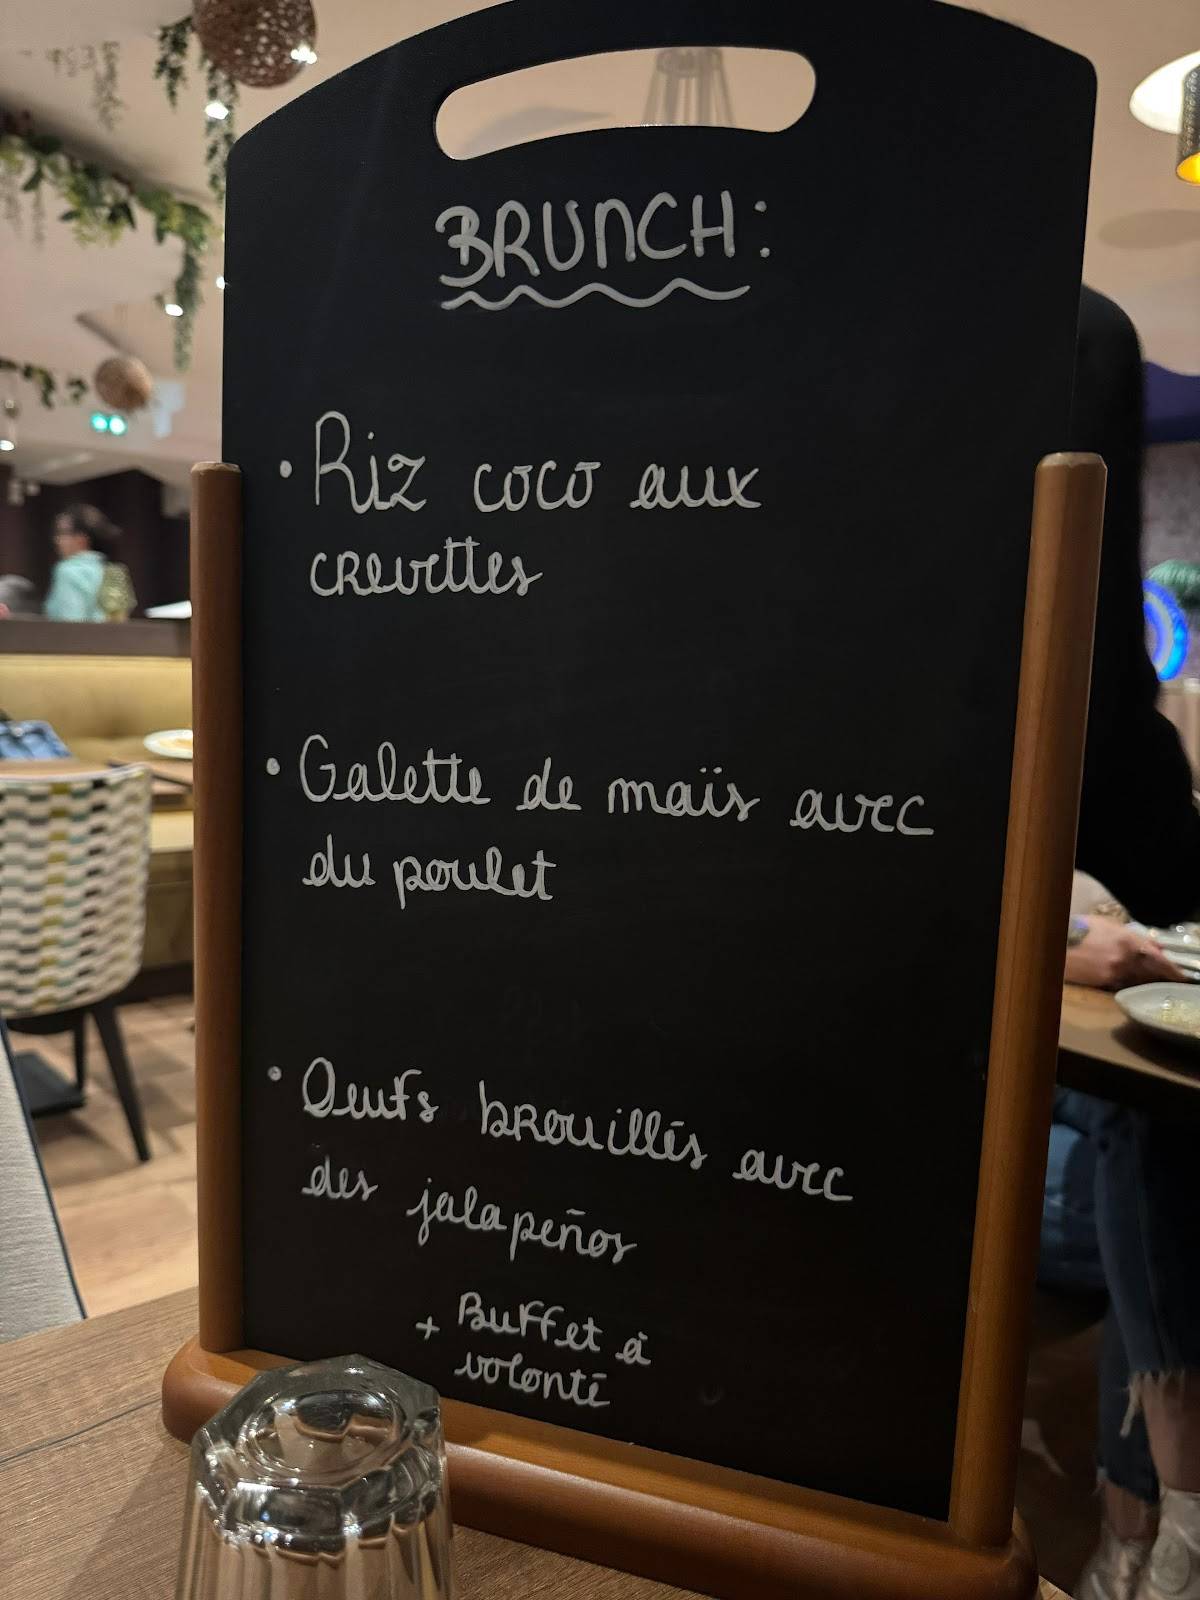 BRUNCH:
• Riz coco aux
crevettes
• Galette de maïs avec
du poulet
• Oeufs brouillés avec
des jalapeños
+ Buffet à
volonté